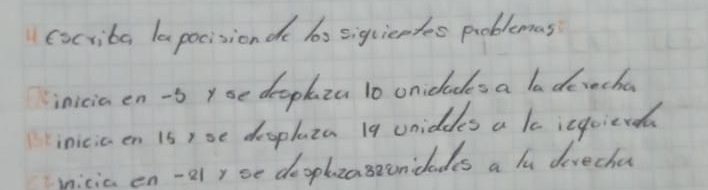 4 escriba la posicion de los siguientes problemas:
A inicia en -5 y se desplaza 10 unidades a la derecha
B inicia en 15 y se desplaza 19 unidades a la izquierda
C inicia en -21 y se desplaza 32 unidades a la derecha